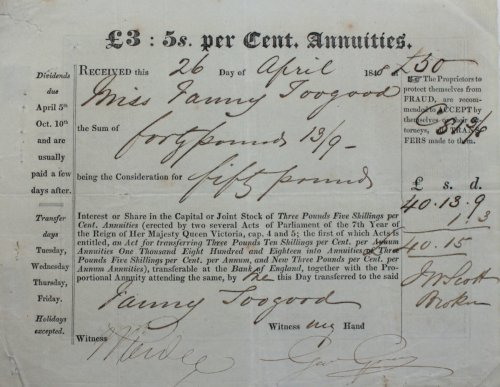 £3 : 5s. per Cent. Annuities.
£50
RECEIVED this 26 Day of April 184
Miss Fanny Toogood
the Sum of forty pounds 13/9-
being the Consideration for fifty pounds
Interest or Share in the Capital or Joint Stock of Three Pounds Five Shillings per
Cent. Annuities (erected by two several Acts of Parliament of the 7th Year of
the Reign of Her Majesty Queen Victoria, cap. 4 and 5; the first of which Acts is
entitled, an Act for transferring Three Pounds Ten Shillings per Cent. per Annum
Annuities One Thousand Eight Hundred and Eighteen into Annuities of Three
Pounds Five Shillings per Cent. per Annum, and New Three Pounds per Cent. per
Annum Annuities), transferable at the Bank of England, together with the Pro-
portional Annuity attending the same, by the this Day transferred to the said
Fanny Toogood
Witness my Hand
Witness
Dividends
due
April 5th
Oct. 10th
and are
usually
paid a few
days after.
Transfer
days
Tuesday,
Wednesday
Thursday,
Friday.
Holidays
excepted.
The Proprietors to
protect themselves from
FRAUD, are recom-
mended to ACCEPT by
themselves or their At-
torneys, all TRANS-
FERS made to them.
£ s. d.
40.13.9
1.3
40.15
JW Scott
Broker